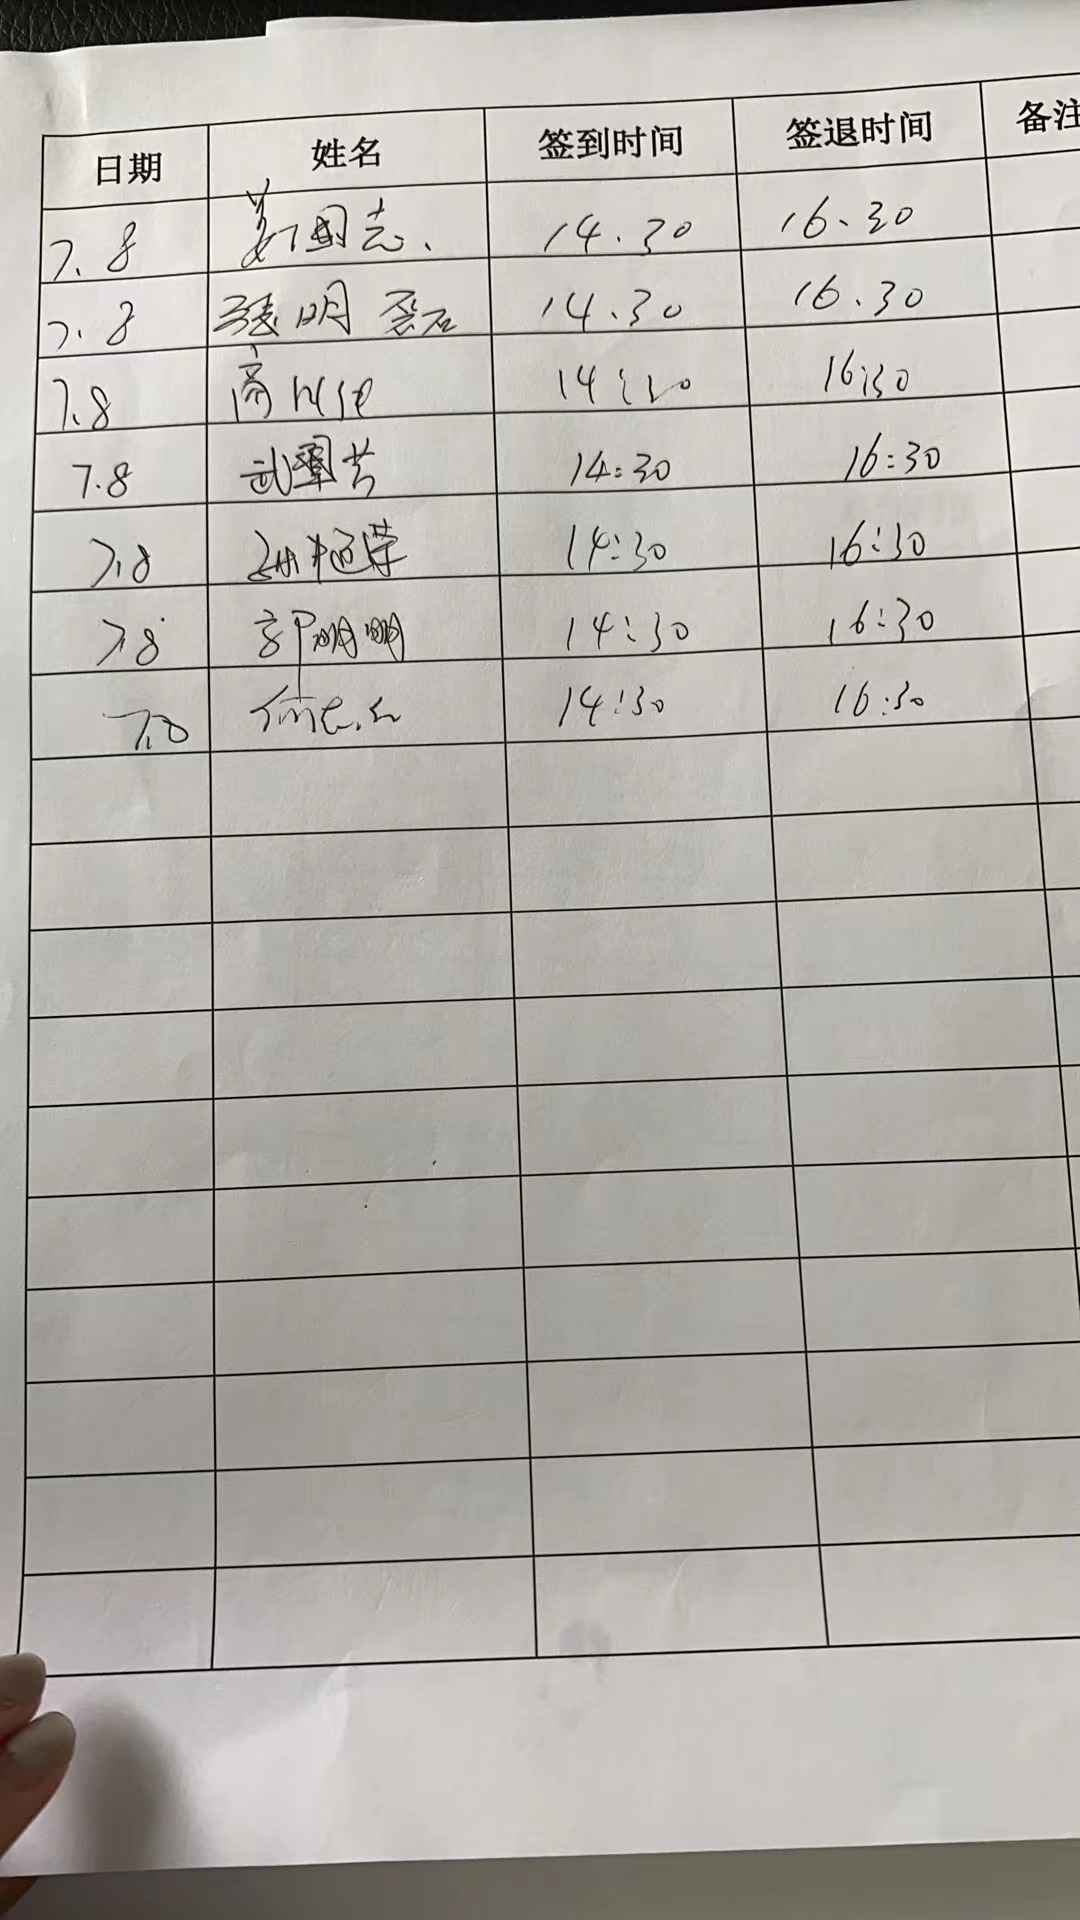 日期 姓名 签到时间 签退时间 备注
7.8 姜国志. 14.30 16.30
7.8 张明磊 14.30 16.30
7.8 14:30 16:30
7.8 武 14:30 16:30
7.8 14:30 16:30
7.8 郭明明 14:30 16:30
7.8 14:30 16:30